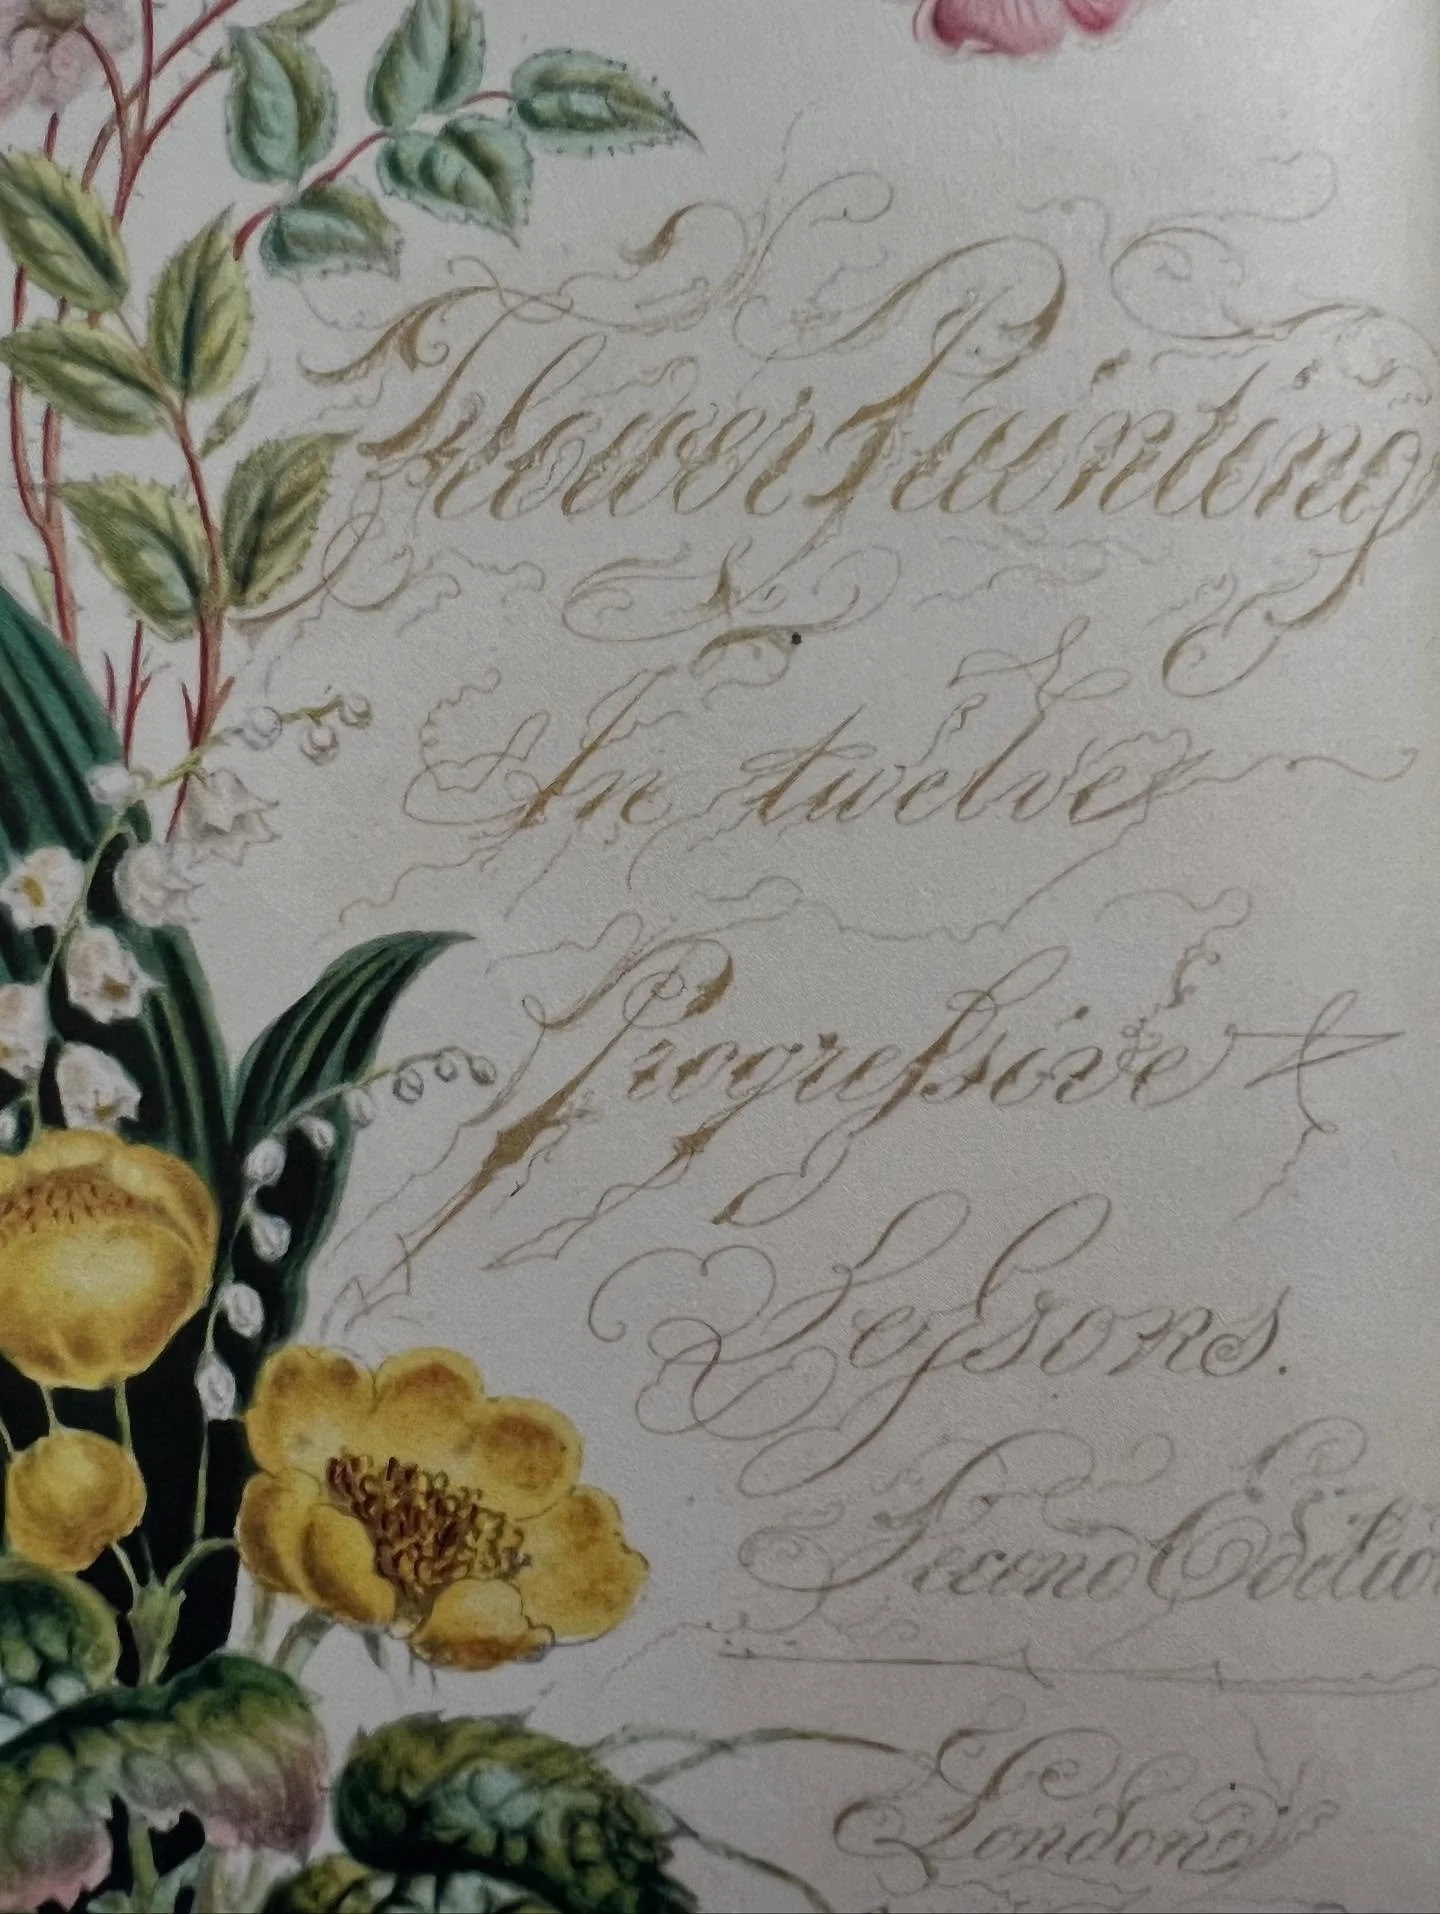 Flower Painting
In twelve
Progreſsive
Leſsons.
Second Edition
London